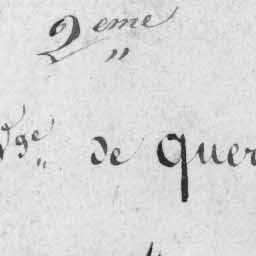 2eme
de Quer